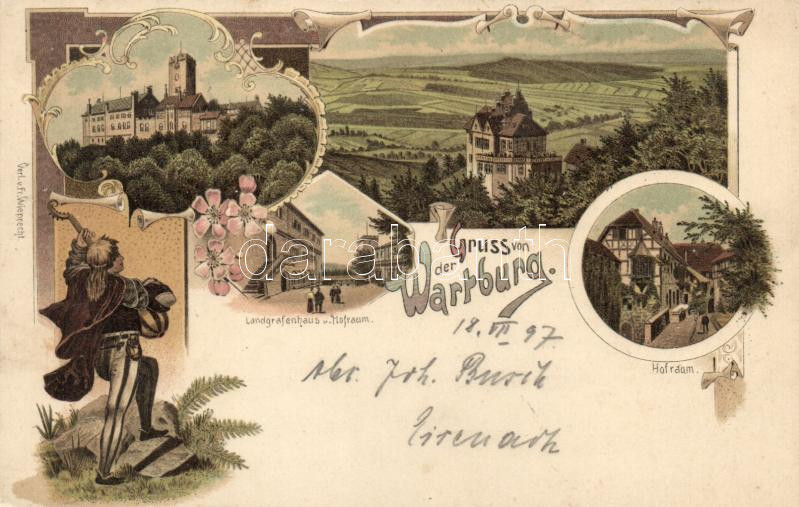 Verl. v. Fr. Wieprecht.
Gruss von
der
Wartburg.
Landgrafenhaus u. Hofraum.
Hofraum.
18. VII 97
Abs. Joh. Busch
Eisenach
darabanth